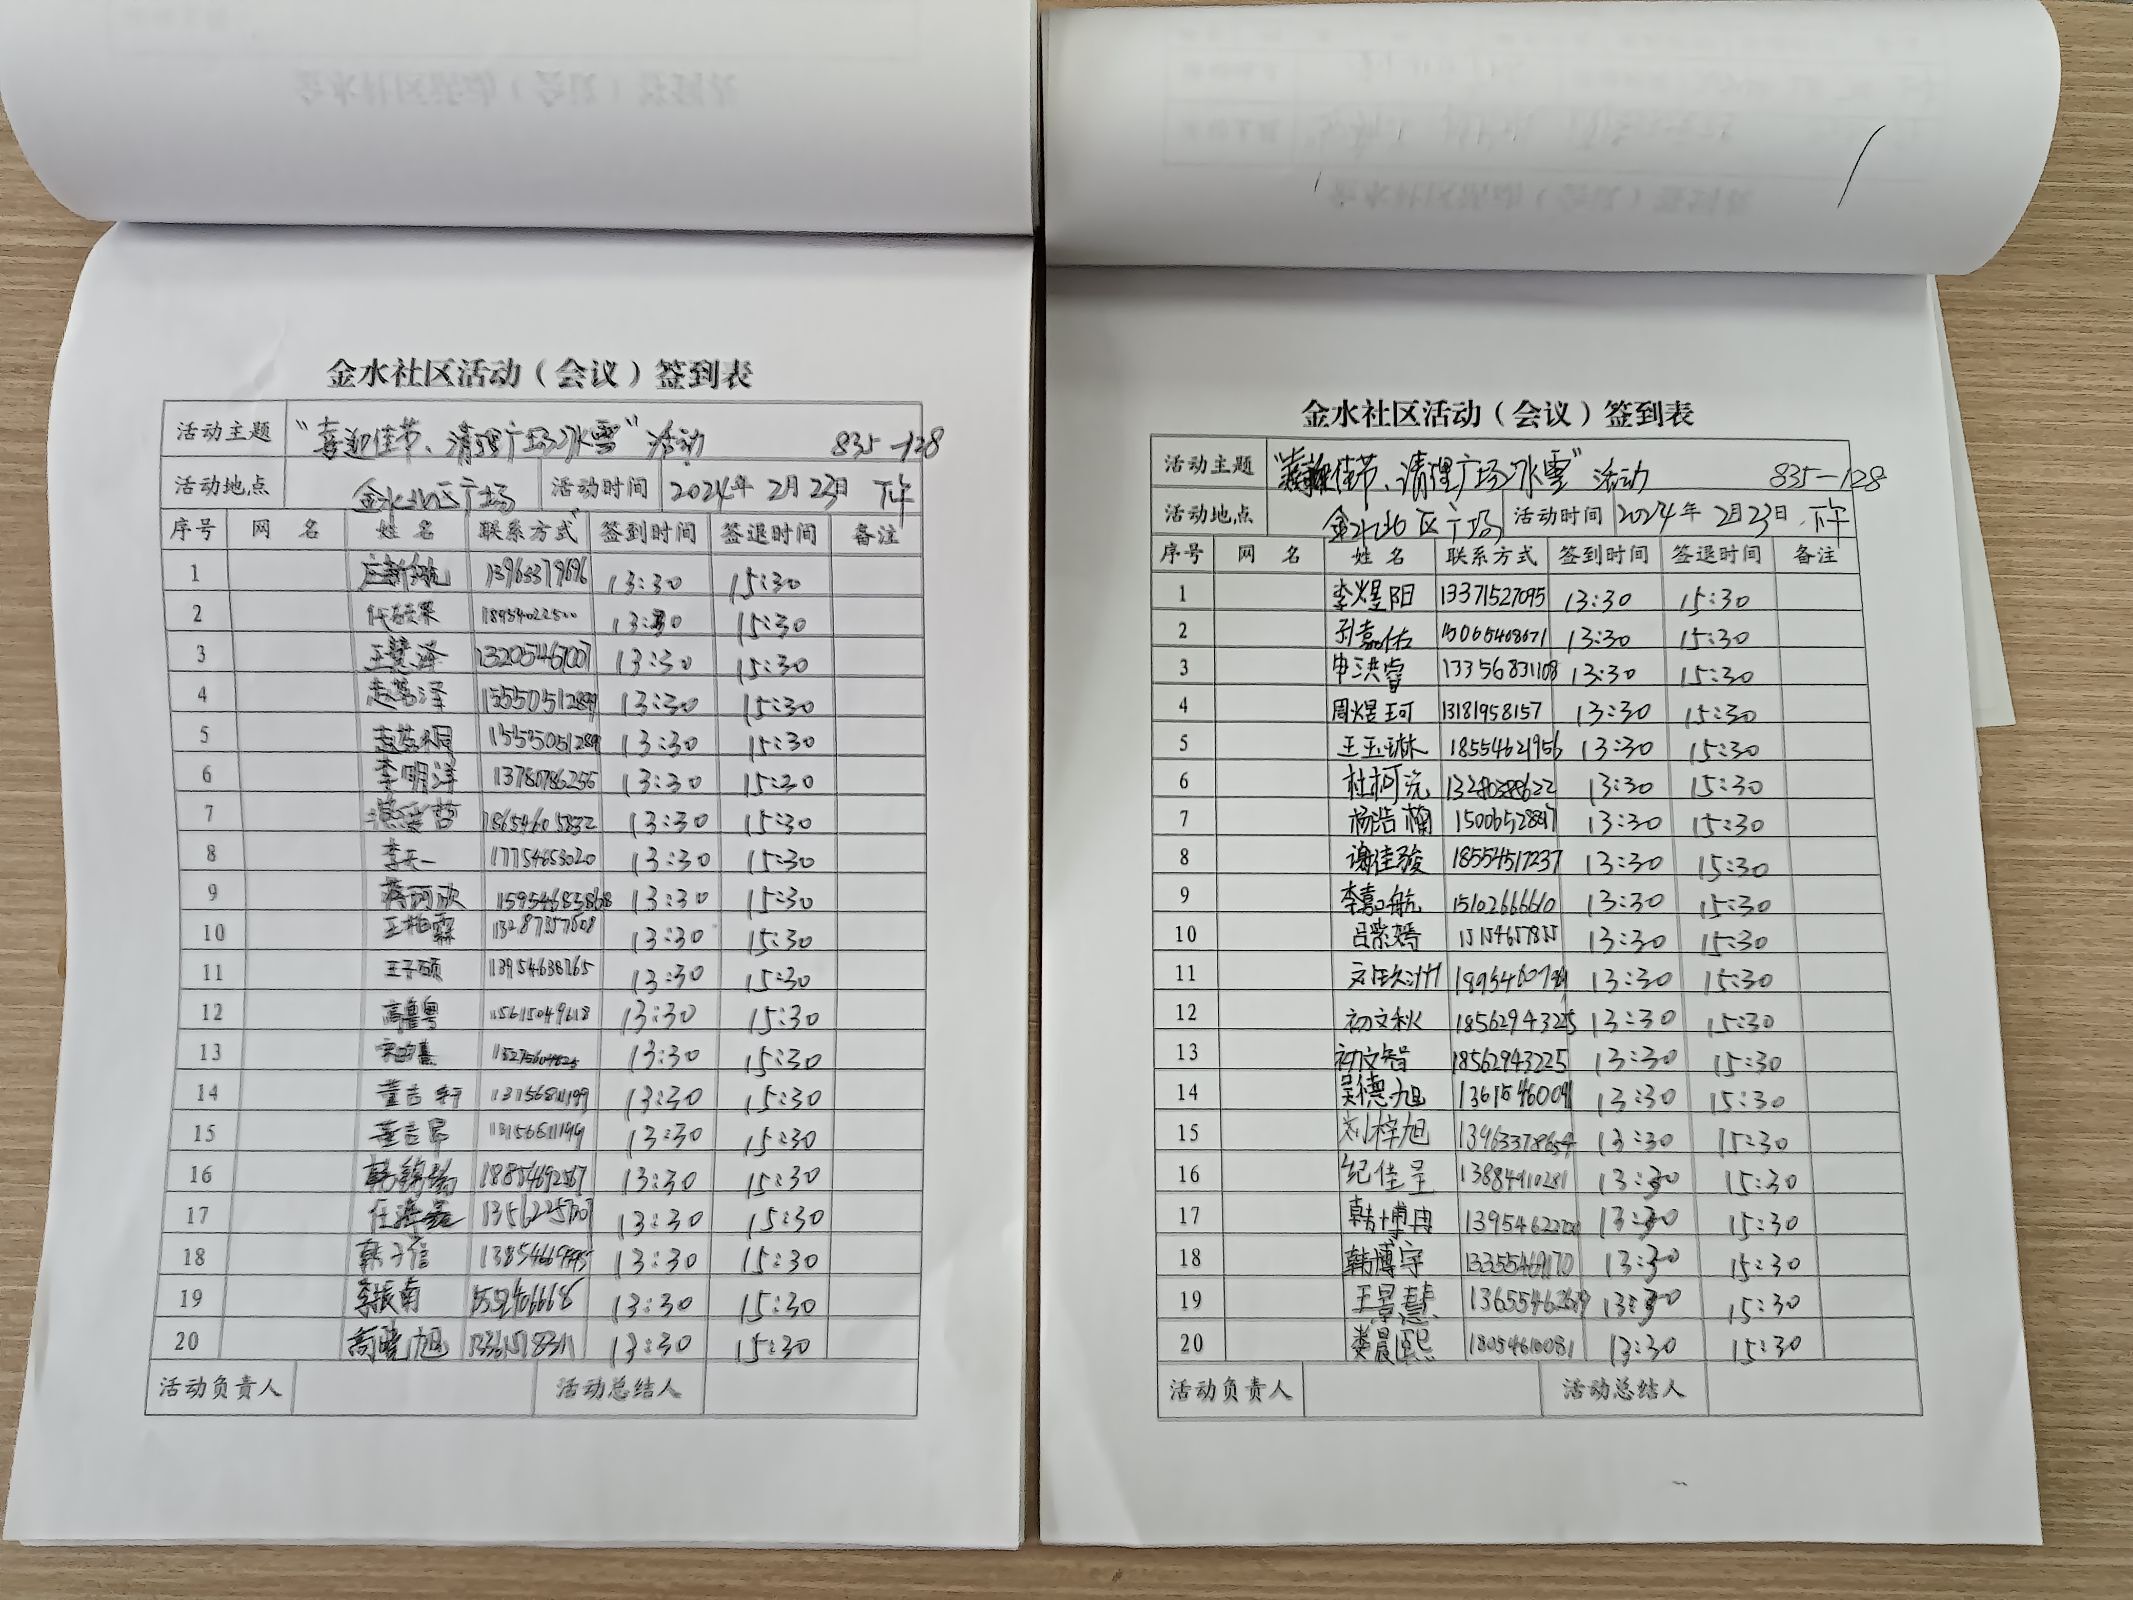 金水社区活动（会议）签到表
活动主题 “喜迎佳节、清理广场冰雪”活动 835-128
活动地点 金水北区广场 活动时间 2024年2月23日 下午
序号 网 名 姓 名 联系方式 签到时间 签退时间 备注
1 庄新航 13963379696 13:30 15:30
2 18954022500 13:30 15:30
3 王慧泽 13205467007 13:30 15:30
4 13:30 15:30
5 13:30 15:30
6 李明洋 13780786255 13:30 15:30
7 18654605832 13:30 15:30
8 李天一 13:30 15:30
9 13:30 15:30
10 王柏霖 13287357508 13:30 15:30
11 王子硕 13954638765 13:30 15:30
12 高鲁粤 15615049618 13:30 15:30
13 13:30 15:30
14 董吉轩 13:30 15:30
15 董吉昂 13:30 15:30
16 13:30 15:30
17 13:30 15:30
18 韩子信 13:30 15:30
19 李振南 13:30 15:30
20 高晓旭 13:30 15:30
活动负责人 活动总结人
金水社区活动（会议）签到表
活动主题 佳节、清理广场冰雪”活动 835-128
活动地点 金水北区广场 活动时间 2024年2月23日.下午
序号 网 名 姓 名 联系方式 签到时间 签退时间 备注
1 李煜阳 13371527095 13:30 15:30
2 孙嘉佑 15065468671 13:30 15:30
3 申洪睿 13356831108 13:30 15:30
4 周煜珂 13181958157 13:30 15:30
5 王玉琳 18554621956 13:30 15:30
6 杜柯沅 13280388622 13:30 15:30
7 杨浩楠 15006528897 13:30 15:30
8 谢佳骏 18554517237 13:30 15:30
9 李嘉航 15102666610 13:30 15:30
10 吕紫嫣 13:30 15:30
11 13:30 15:30
12 初文秋 18562943225 13:30 15:30
13 初文智 18562943225 13:30 15:30
14 吴德旭 13615460091 13:30 15:30
15 刘梓旭 13963378654 13:30 15:30
16 纪佳呈 13884910281 13:30 15:30
17 韩博冉 13:30 15:30
18 韩博宇 13355469170 13:30 15:30
19 王景慧 13:30 15:30
20 娄晨熙 18054610081 13:30 15:30
活动负责人 活动总结人